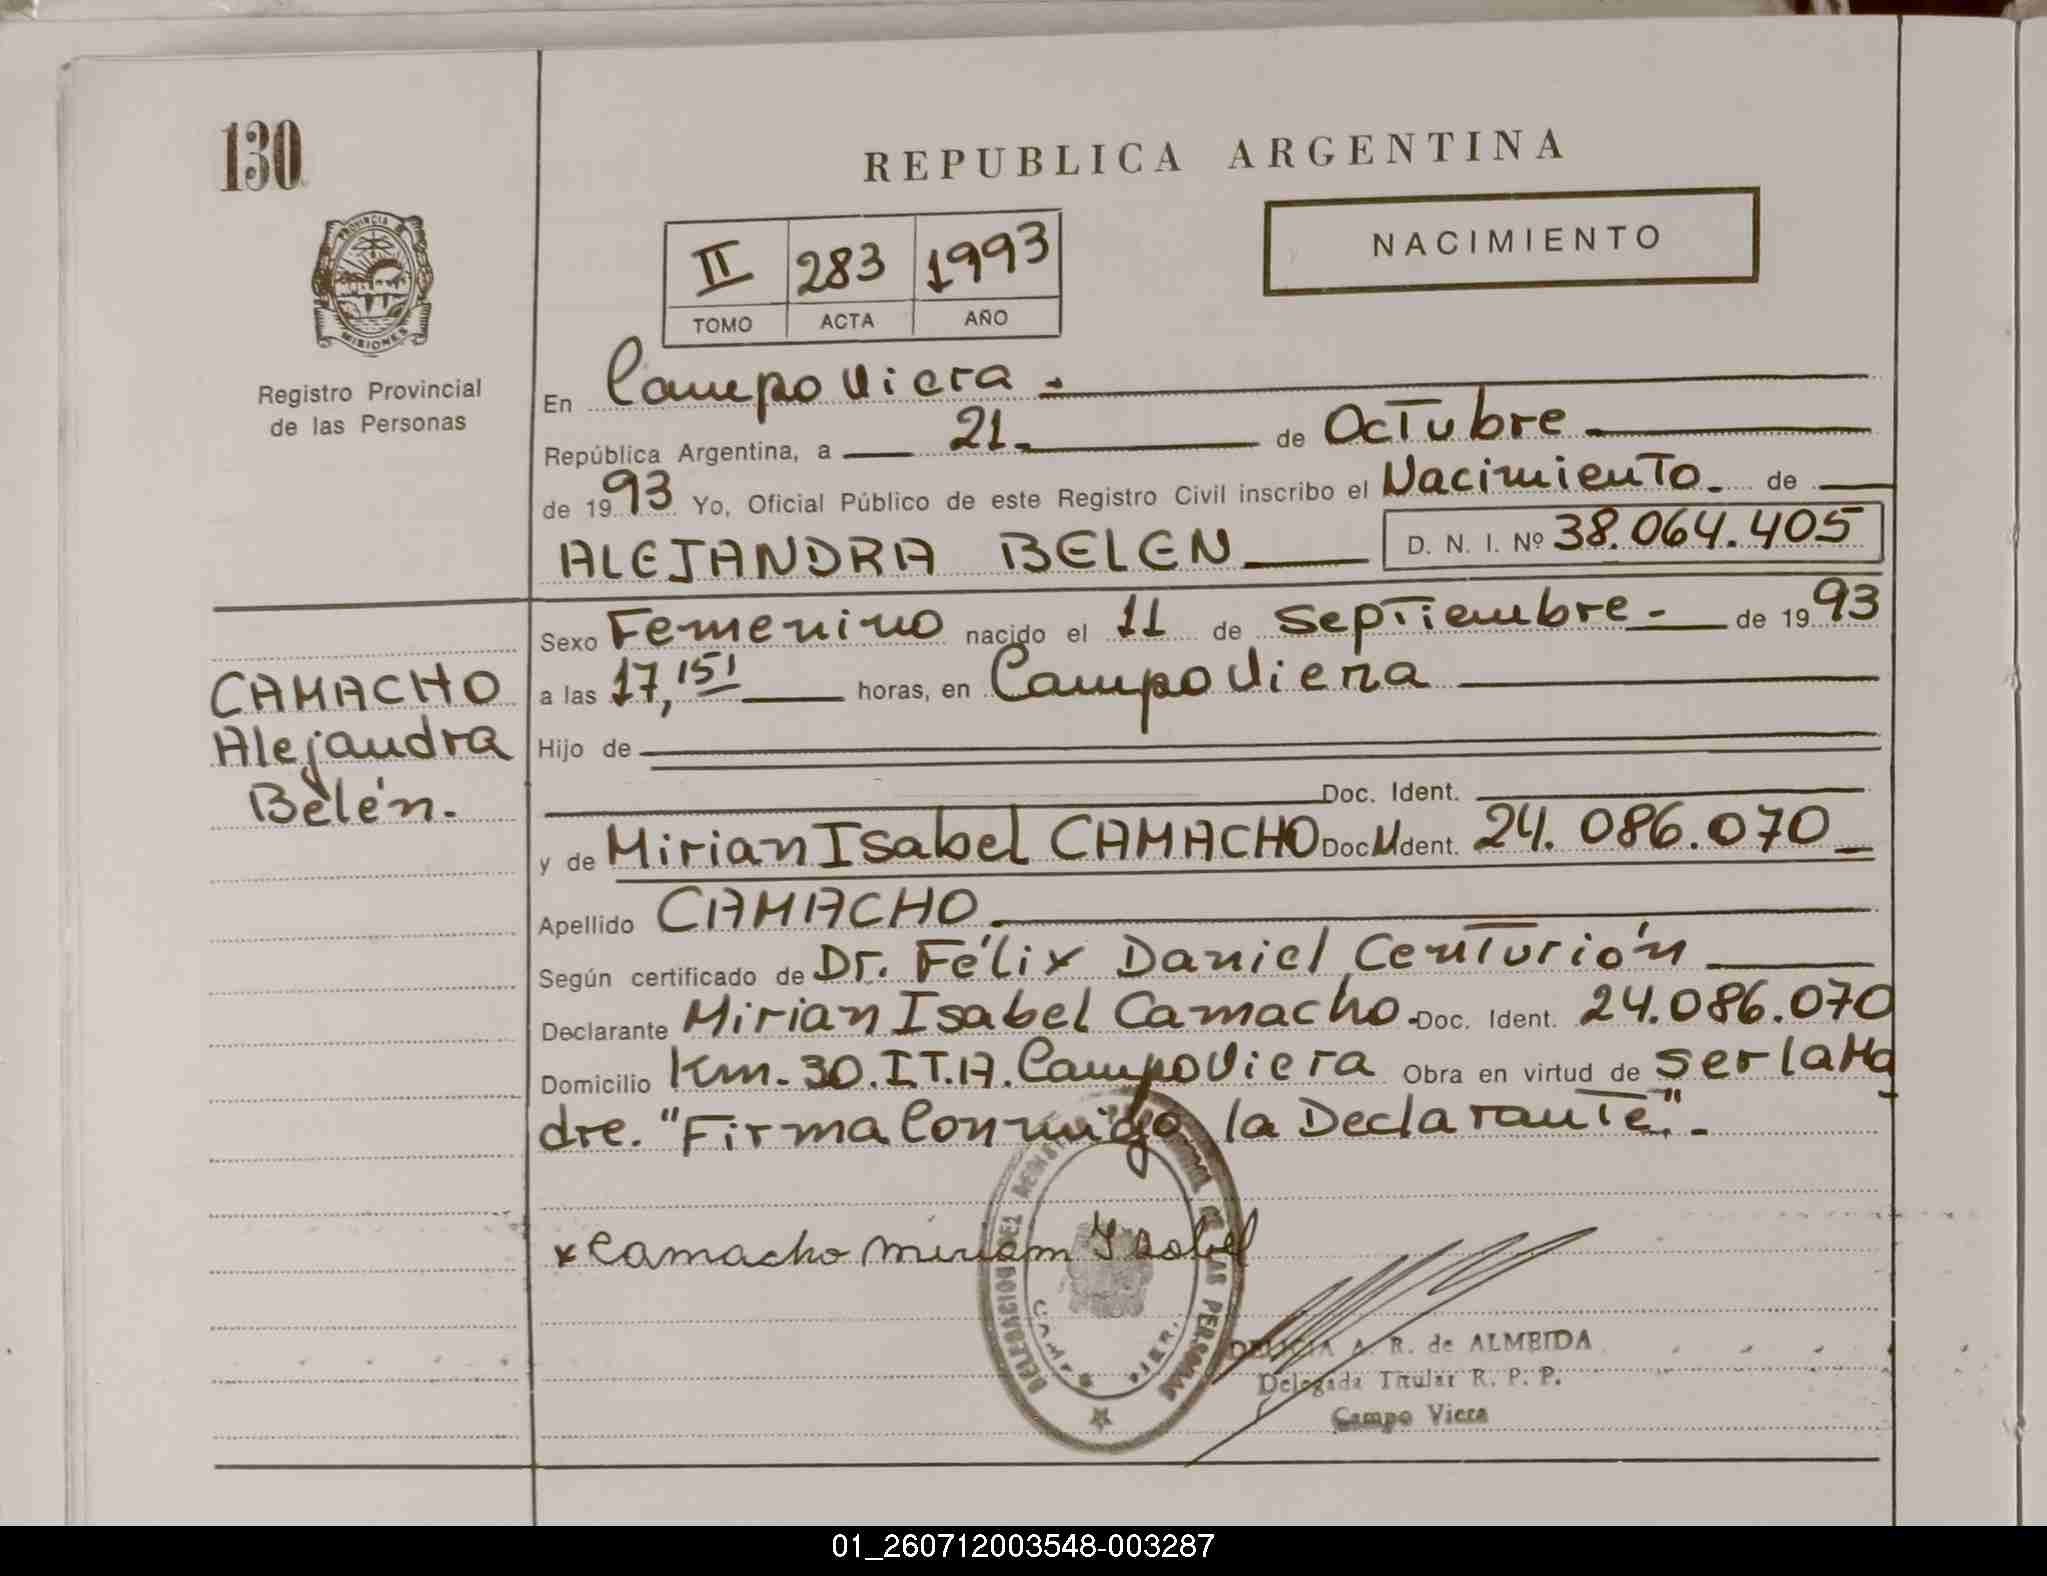 130
REPUBLICA ARGENTINA
NACIMIENTO
II 283 1993
TOMO ACTA AÑO
PROVINCIA DE
MISIONES
Registro Provincial
de las Personas
En Campo Viera -
República Argentina, a 21 de Octubre
de 1993 Yo, Oficial Público de este Registro Civil inscribo el Nacimiento. de
ALEJANDRA BELEN D. N. I. Nº 38.064.405
Sexo Femenino nacido el 11 de Septiembre - de 1993
a las 17,15' horas, en Campo Viera
CAMACHO
Alejandra
Belén.
Hijo de
Doc. Ident.
y de Mirian Isabel CAMACHO Doc. Ident. 24.086.070
Apellido CAMACHO
Según certificado de Dr. Félix Daniel Centurión
Declarante Mirian Isabel Camacho. Doc. Ident. 24.086.070
Domicilio Km. 30. I.T.A. Campo Viera Obra en virtud de ser la Ma
dre. "Firma Conmigo la Declarante".-
x Camacho miriam Isabel
A. R. de ALMEIDA
Delegada Titular R. P. P.
Campo Viera
01_260712003548-003287